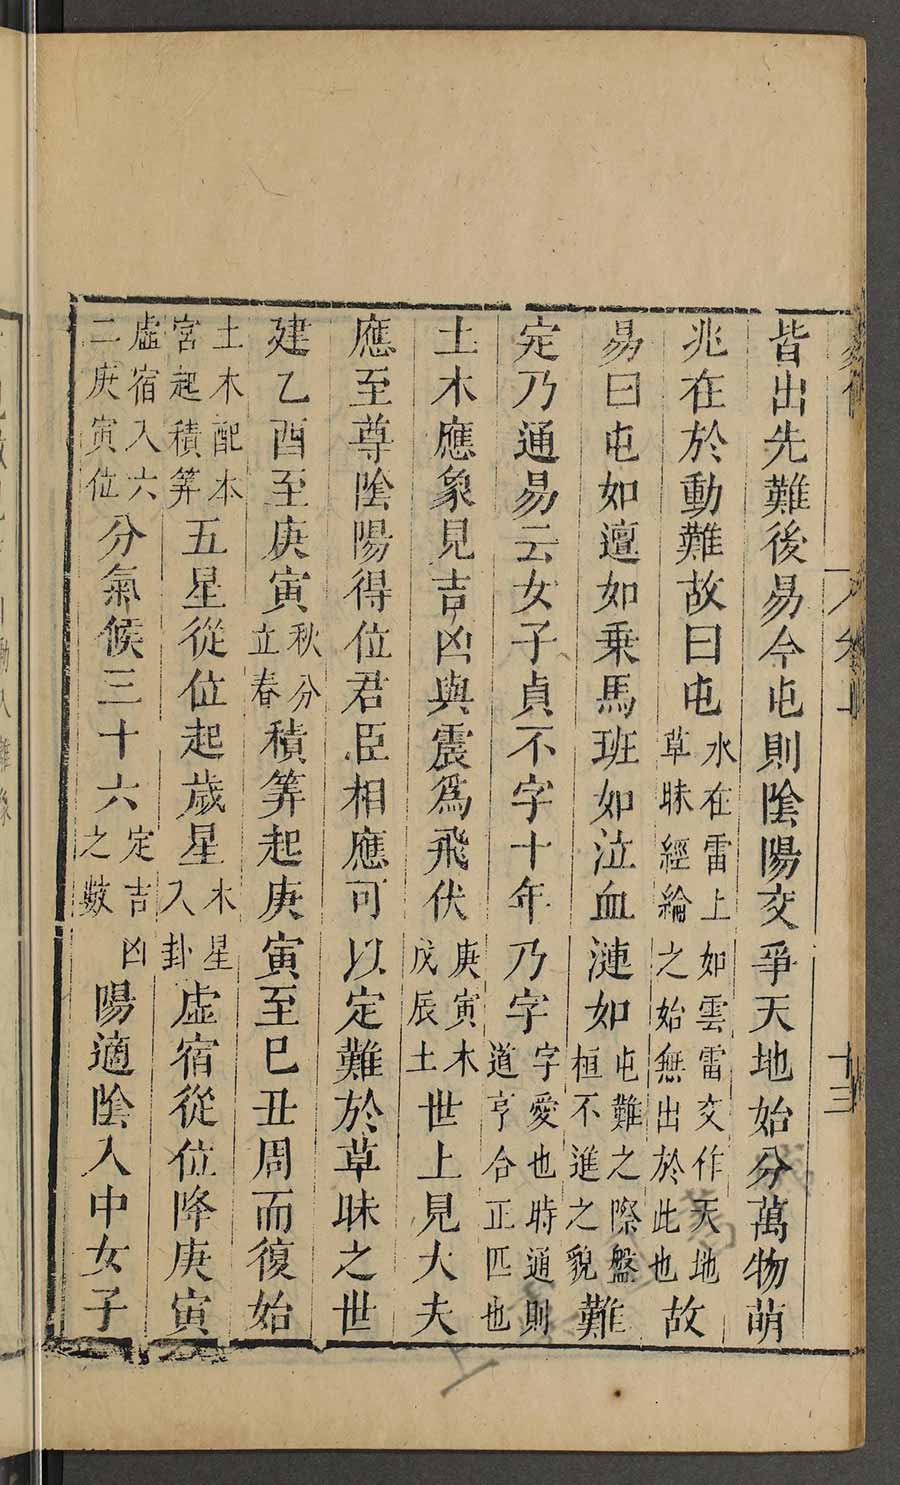 皆出先難後易今屯則陰陽交爭天地始分萬物萌
兆在於動難故曰屯水在雷上如雲雷交作天地草昧經綸之始無出於此也故
易曰屯如邅如乗馬班如泣血漣如屯難之際盤桓不進之貌難
定乃通易云女子貞不字十年乃字字愛也時通則道亨合正匹也
土木應象見吉凶與震爲飛伏庚寅木戊辰土世上見大夫
應至尊陰陽得位君臣相應可以定難於草昧之世
建乙酉至庚寅秋分立春積筭起庚寅至巳丑周而復始
土木配本宮起積筭五星從位起歲星木星入卦虛宿從位降庚寅
虛宿入六二庚寅位分氣候三十六定吉凶之數陽適陰入中女子
十三